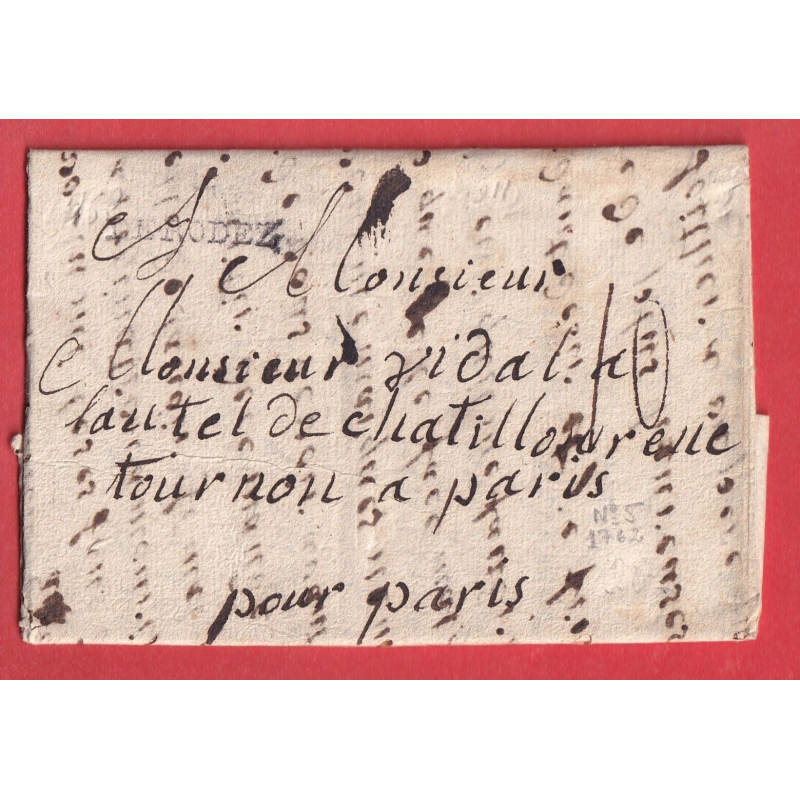 RODEZ
A Monsieur
Monsieur vidal a
lautel de chatillon rene
tournon a paris
10
pour paris
N° 5
1762